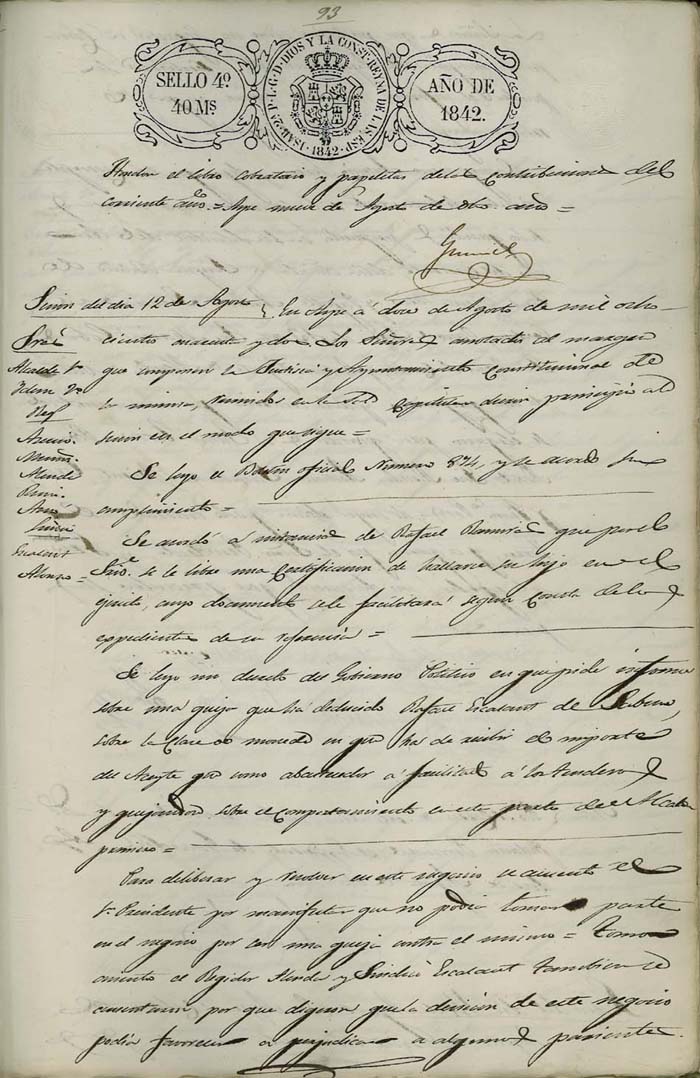 93
SELLO 4º
40 Ms
ISAB. 2ª P. L. G. D. DIOS Y LA CONST. REYNA DE LAS ESP.
1842
AÑO DE
1842.
el libro cobratorio y papeletas de la contribucion del
corriente año = Aspe nueve de Agosto de dho. año =
Sesion del dia 12 de Agosto
En Aspe á doce de Agosto de mil ocho-
Sres
Alcalde 1º
Idem 2º
Alonso =
cientos cuarenta y dos. Los Señores anotados al margen
que componen la Justicia y Ayuntamiento constitucional de
la misma, reunidos en la Sala Capitular dieron principio á la
sesion en el modo que sigue =
Se leyo el Boletin oficial Numero 874, y se acordó su
cumplimiento =
Se acordó á instancia de Rafael Ramirez que por el
Srio. se le libre una Certificacion de hallarse su hijo en el
ejercito, cuyo documento se le facilitará segun consta de los
expedientes de su referencia =
Se leyo un decreto del Gobierno Politico en que pide informe
sobre una queja que ha deducido Rafael Escalant de
sobre la clase de moneda en que ha de recibir el importe
del Aceyte que como abastecedor á facilitado á los tenderos
y quejandose sobre el comportamiento en esta parte del Alcalde
primero =
Para deliberar y resolver en este negocio se ausentó el
Sr. Presidente por manifestar que no podia tomar parte
en el negocio por ser una queja contra el mismo =
el Regidor y Sindico Escalant tambien se
ausentaron, por que digeron que la decision de este negocio
podia favorecer o perjudicar a algunos parientes.